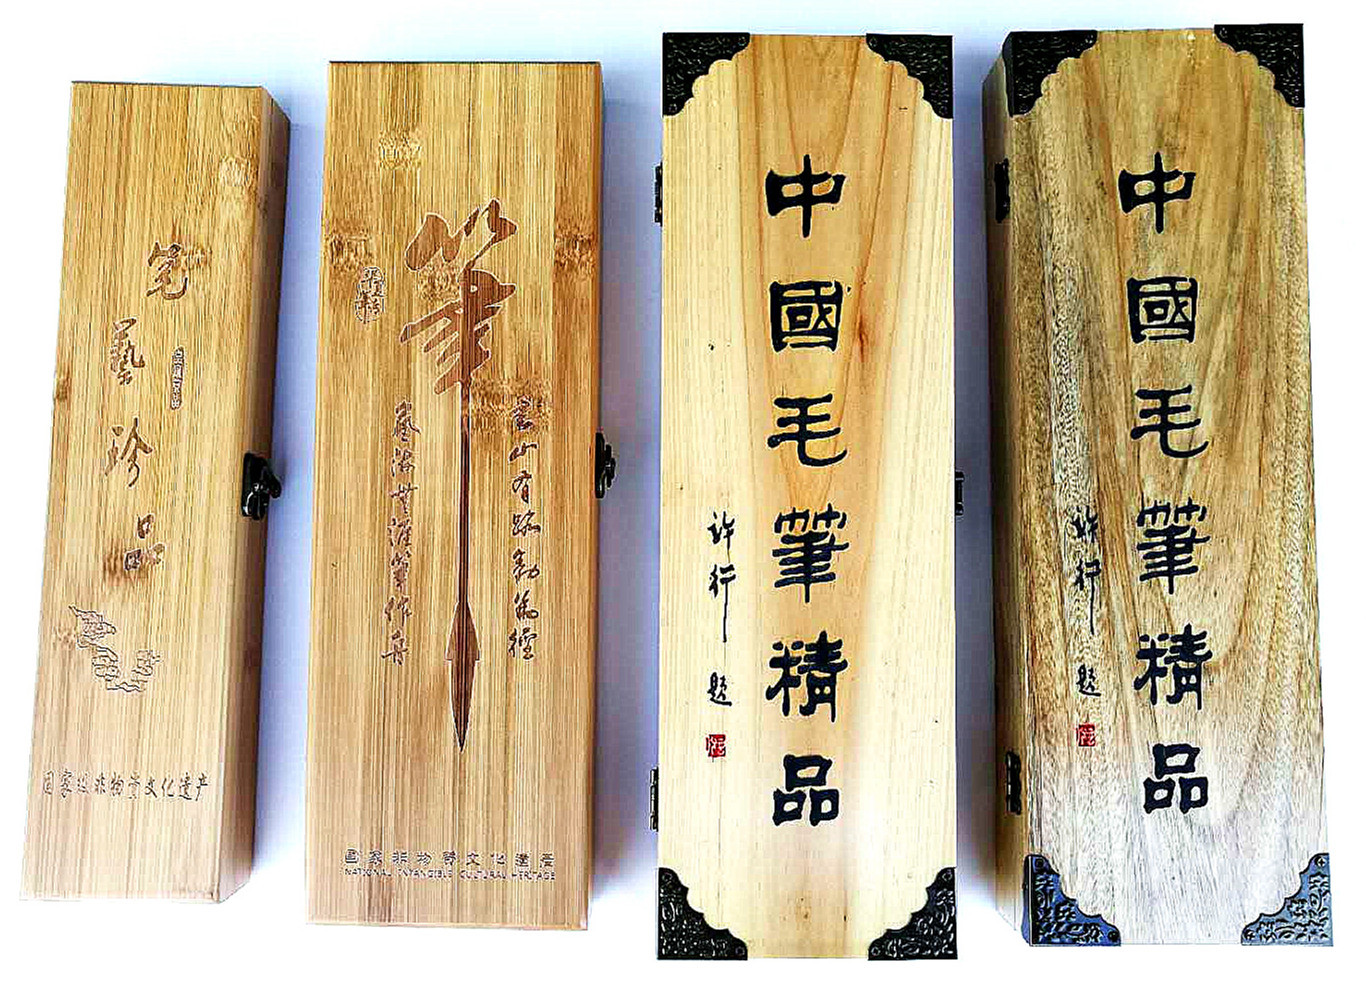 藝珍品
国家级非物质文化遗产
筆
書山有路勤為徑
藝海無涯筆作舟
國家非物質文化遺產
NATIONAL INTANGIBLE CULTURAL HERITAGE
中國毛筆精品
許行題
中國毛筆精品
許行題